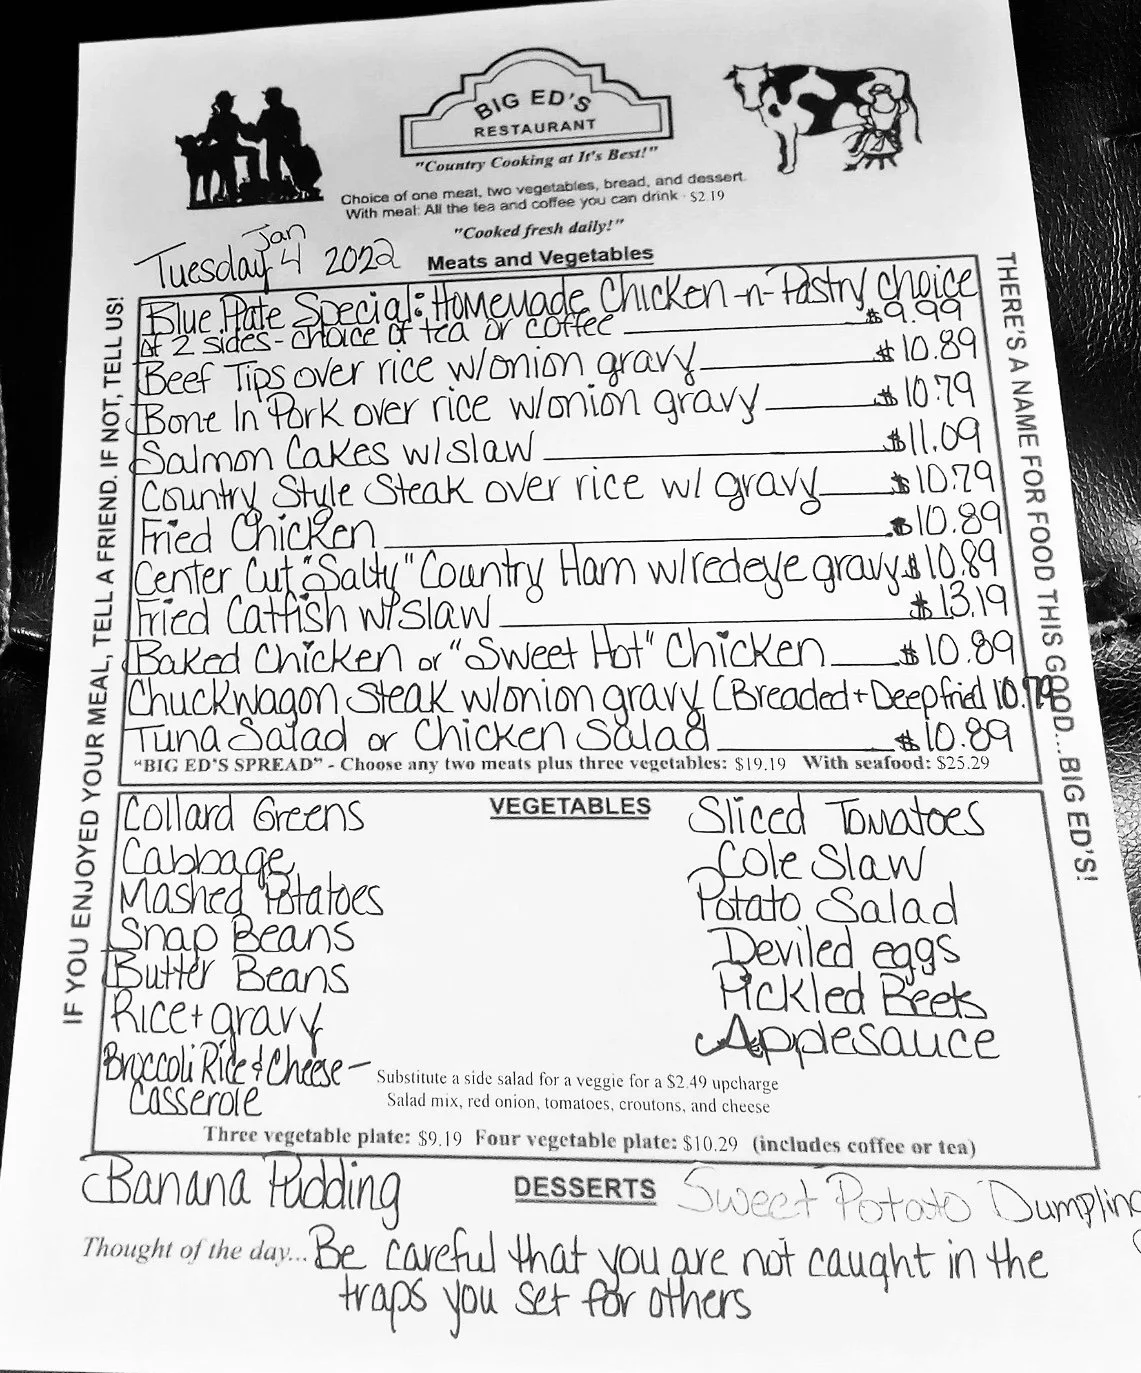 BIG ED'S
RESTAURANT
"Country Cooking at It's Best!"
Choice of one meat, two vegetables, bread, and dessert.
With meal: All the tea and coffee you can drink - $2.19
"Cooked fresh daily!"
Tuesday Jan 4 2022
Meats and Vegetables
Blue Plate Special: Homemade Chicken-n-Pastry choice
of 2 sides - choice of tea or coffee $9.99
Beef Tips over rice w/onion gravy $10.89
Bone In Pork over rice w/onion gravy $10.79
Salmon Cakes w/slaw $11.09
Country Style Steak over rice w/ gravy $10.79
Fried Chicken $10.89
Center Cut "Salty" Country Ham w/redeye gravy $10.89
Fried Catfish w/slaw $13.19
Baked Chicken or "Sweet Hot" Chicken $10.89
Chuckwagon Steak w/onion gravy (Breaded + Deepfried 10.79
Tuna Salad or Chicken Salad $10.89
"BIG ED'S SPREAD" - Choose any two meats plus three vegetables: $19.19 With seafood: $25.29
VEGETABLES
Collard Greens
Cabbage
Mashed Potatoes
Snap Beans
Butter Beans
Rice + gravy
Broccoli Rice & Cheese -
Casserole
Sliced Tomatoes
Cole Slaw
Potato Salad
Deviled eggs
Pickled Beets
Applesauce
Substitute a side salad for a veggie for a $2.49 upcharge
Salad mix, red onion, tomatoes, croutons, and cheese
Three vegetable plate: $9.19 Four vegetable plate: $10.29 (includes coffee or tea)
Banana Pudding
DESSERTS
Sweet Potato Dumpling
Thought of the day... Be careful that you are not caught in the
traps you set for others
IF YOU ENJOYED YOUR MEAL, TELL A FRIEND. IF NOT, TELL US!
THERE'S A NAME FOR FOOD THIS GOOD...BIG ED'S!